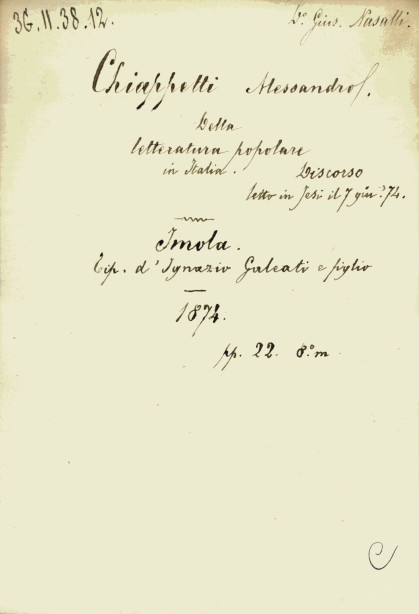 36.II.38.12.
Dº Gius. Nasalli.
Chiappetti Alessandro.
Della
letteratura popolare
in Italia. Discorso
letto in Jesi il 7 giuº. 74.
Imola.
Tip. d'Ignazio Galeati e figlio
1874.
pp. 22. 8.º m